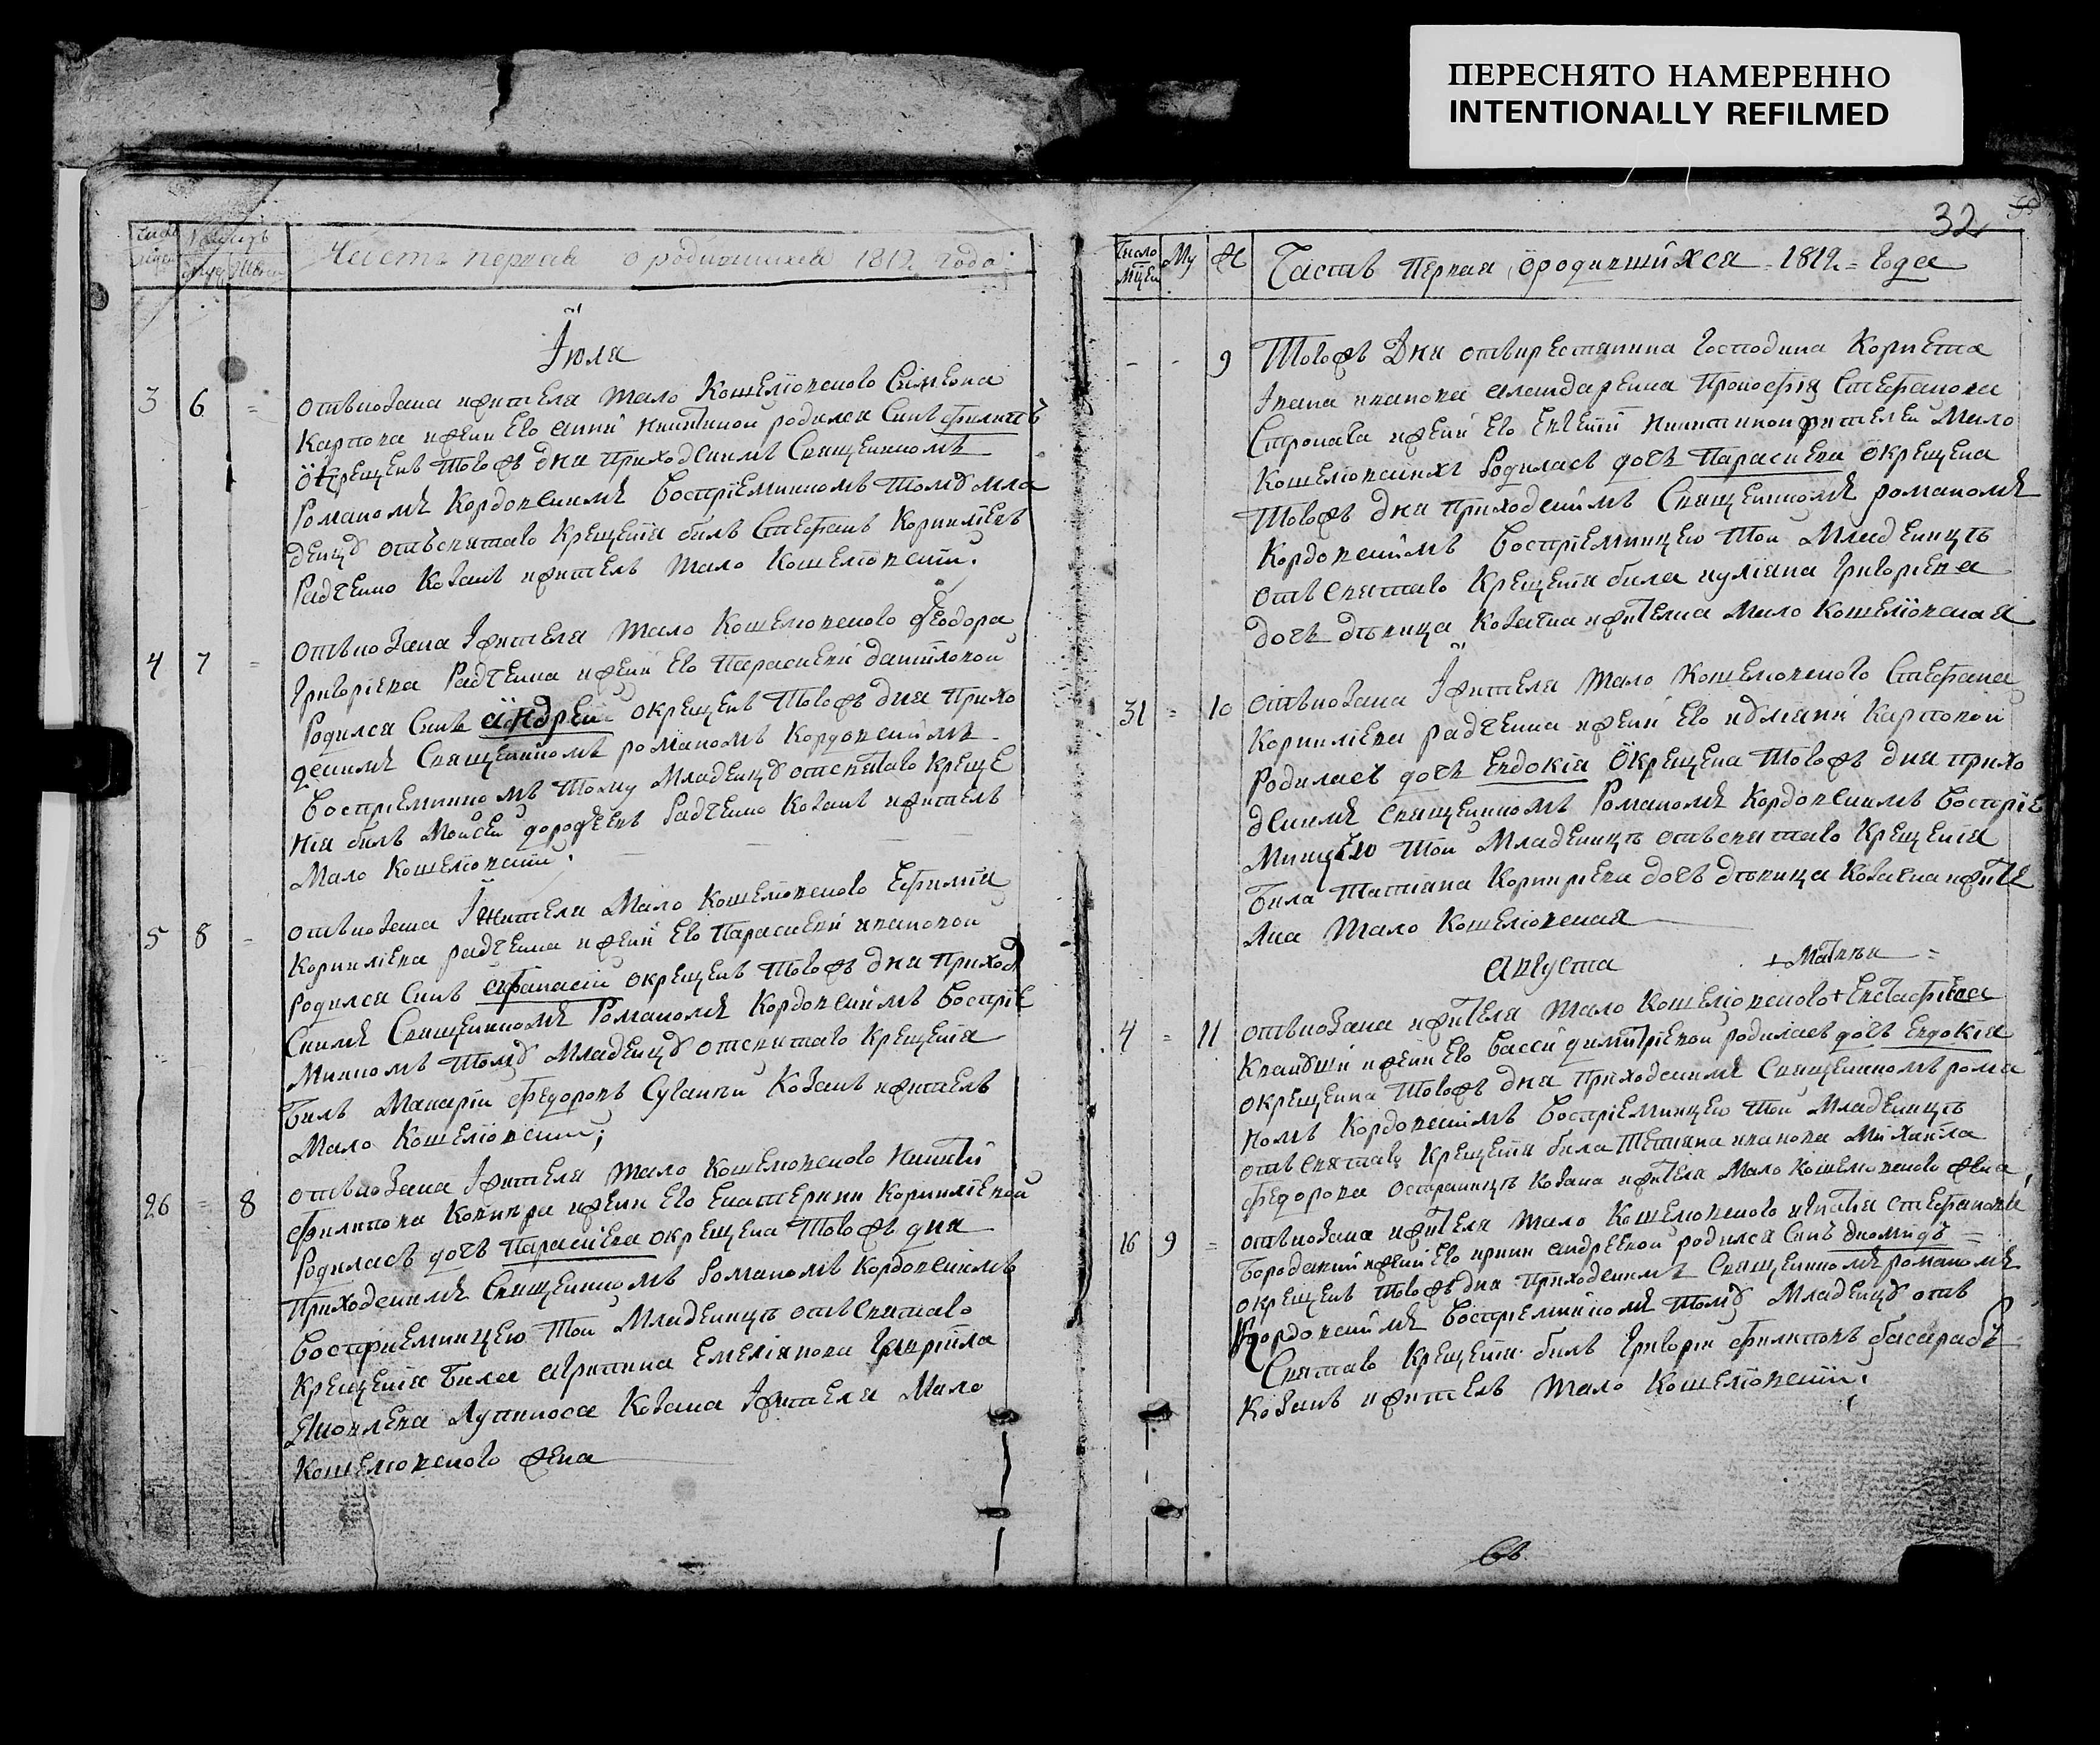 ПЕРЕСНЯТО НАМЕРЕННО
INTENTIONALLY REFILMED
32
Часть первая о родившихся 1812 года
Іюля
3 6 = отъкозака ижителя Мало Кошелювского Симеона
Карпова ижени Его Анни Никитиной родился Синъ Филипъ
Окрещенъ Тогожъ дня Приходскимъ Священникомъ
Романомъ Кордовскимъ Воспріемникомъ Тому мла
денцу отъсвятаго Крещенія билъ Стефанъ Корниліевъ
Радченко Козакъ ижитель Мало Кошелювскій.
4 7 = Отъкозака Іжителя Мало Кошелювского Феодора
Григоріева Радченка ижени Его Параскеви Даниловой
Родился Синъ Андрей окрещенъ Тогожъ дня Прихо
дскимъ Священникомъ романомъ Кордовскимъ
Воспріемникомъ Тому Младенцу отсвятаго Креще
нія билъ Мойсей Дорофеевъ Радченко Козакъ ижитель
Мало Кошелювскій.
5 8 - отъкозака Іжителя Мало Кошелювского Ефимія
Корниліева радченка ижени Его Параскеви ивановой
родился Синъ Афанасій окрещенъ Тогожъ дня Приход
Скимъ Священникомъ Романомъ Кордовскимъ Воспріе
Мникомъ Тому Младенцу отсвятаго Крещенія
Билъ Макарій Федоровъ Козакъ ижитель
Мало Кошелювскій;
26 = 8 отъкозака Іжителя Мало Кошелювского Никити
Филипова ижени Его Екатерини Корниліевой
Родилась дочь Параскева окрещена Тогожъ дня
Приходскимъ Священникомъ Романомъ Кордовскимъ
Воспріемницею Той Младеницъ отъсвятаго
Крещенія Била Агрипина Емеліянова Гавріила
Яковлева Козака Іжителя Мало
Кошелювского жена
Число Мцеа Му Ж Часть Первая Ородившихся 1812 = Года
- - 9 Тогожъ Дня отъкрестянина Господина Корнета
Івана иванова Прокофія Стефанова
ижени Его Евгеній Никитиной жителей Мало
Кошелювскихъ Родилась дочь Параскева Окрещена
Тогожъ дня Приходскимъ Священникомъ романомъ
Кордовскимъ Воспріемницею Той Младеницъ
отъ Святаго Крещенія била иуліана Григоріева
дочь дѣвица Козачка ижителка Мало Кошелювская
31 = 10 Отъкозака Іжителя Мало Кошелювского Стефана
Корниліева радченка ижени Его иуліани Карповой
Родилась дочь Евдокія Окрещена Тогожъ дня прихо
дскимъ священникомъ Романомъ Кордовскимъ Воспріе
Мницею Той Младеницъ отъсвятаго Крещенія
Била Татіана дочь дѣвица Козачка ижите
лка Мало Кошелювская
Августа + Матвѣя =
4 = 11 отъкозака ижителя Мало Кошелювского + Евстафіева
ижени Его Васси димитріевой родилась дочь Евдокія
окрещенна Тогожъ дня Приходскимъ Священникомъ рома
номъ Кордовскимъ Воспріемницею Той Младеницъ
отъ Святаго Крещенія била Тетіана иванова Михаила
Федорова Козака ижителя Мало Кошелювского жена
16 9 = отъкозака ижителя Мало Кошелювского Стефанова
ижени Его ирини Андреевой родился Синъ Диомидъ =
окрещенъ Тогожъ дня Приходскимъ Священникомъ романомъ
Кордовскимъ Воспріемникомъ Тому Младенцу отъ
Святаго Крещенія билъ Григорій Филиповъ басарабъ
Козакъ ижитель Мало Кошелювскій.